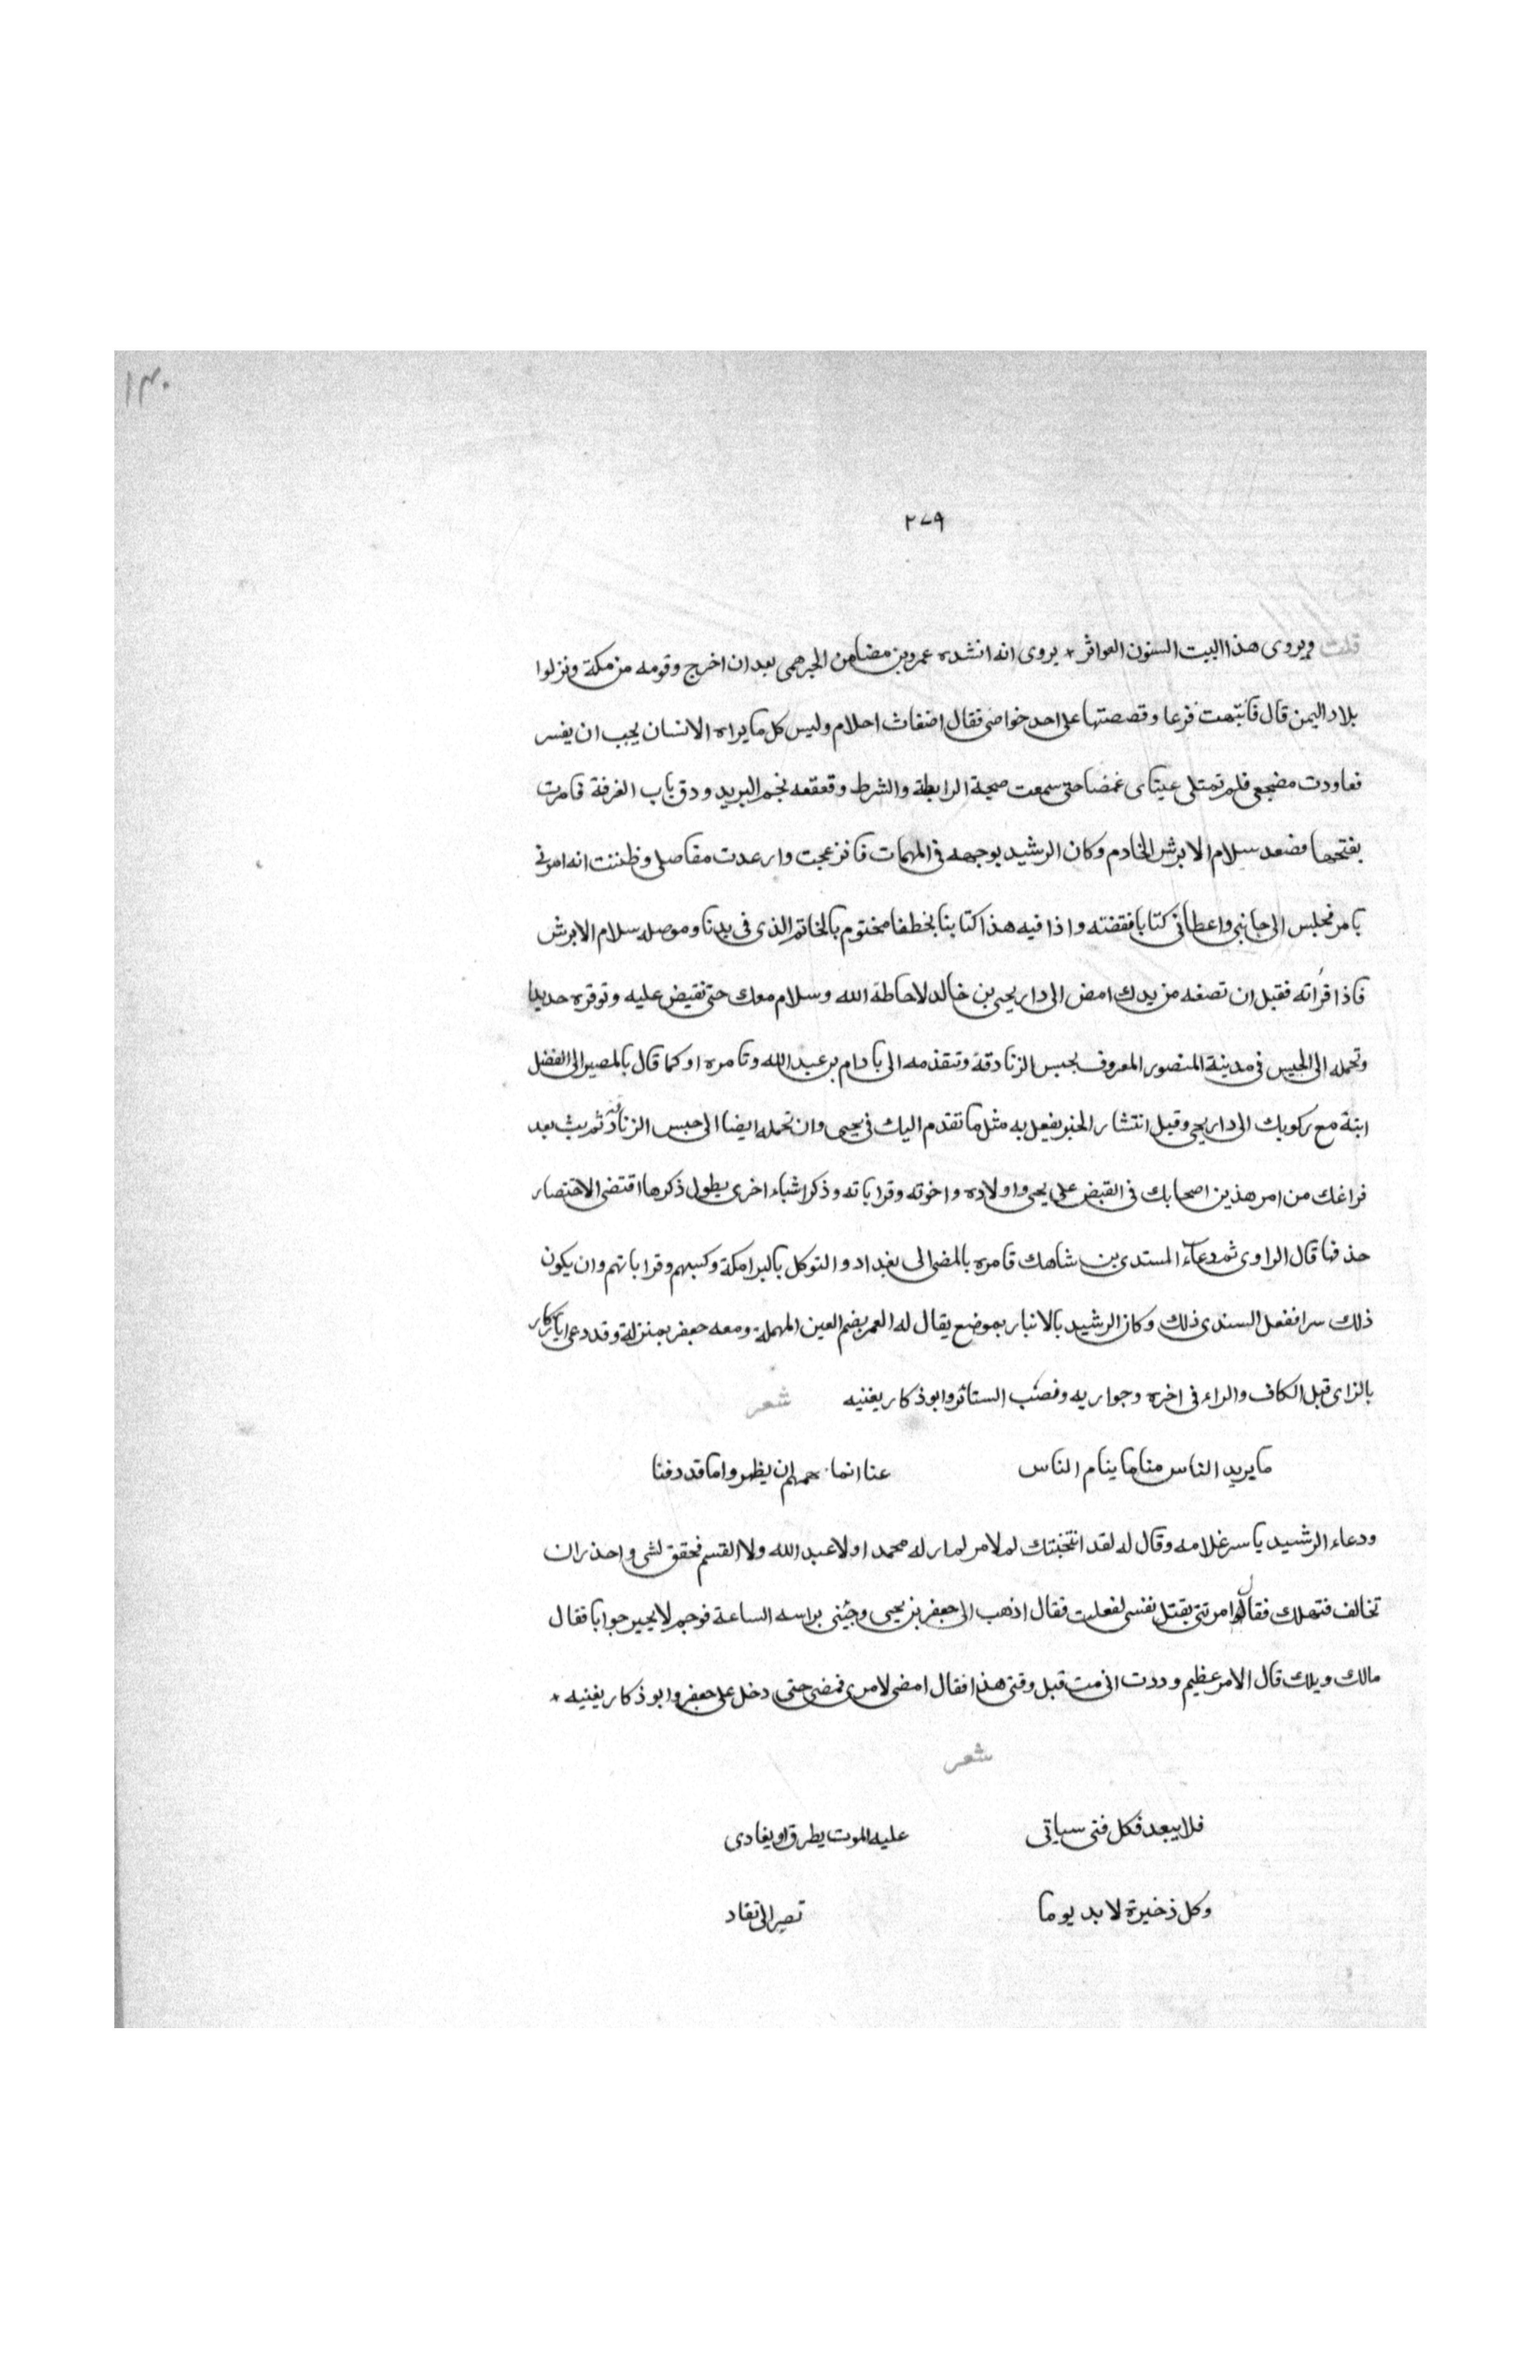 ١٣٠
٢٧٩
قلت ويروى هذا البيت السنون العواثر * يروى انه انشده عمرو بن مضامن الجرهمى بعد ان اخرج وقومه من مكة ونزلوا
بلاد اليمن قال فانتبهت فزعا وقصصتها على احد خواصى فقال اضغاث احلام وليس كل ما يراه الانسان يجب ان يفسر
فعاودت مضجعى فلم تمتلى عيناى غمضا حتى سمعت صيحة الرابطة والشرط وقعقعه لجم البريد ودق باب الغرفة فامرت
بفتحها فصعد سلام الابرش الخادم وكان الرشيد يوجهه فى المهمات فانزعجت وارعدت مفاصلى وظننت انه امر فى
بامر فجلس الى جانبى واعطانى كتابا ففضته واذا فيه هذا كتابنا بخطنا مختوم بالخاتم الذى فى يدنا وموصله سلام الابرش
فاذا قرأته فقبل ان تضعه من يدك امض الى دار يحيى بن خالد لاحاطة الله وسلام معك حتى تقبض عليه وتوقره حديدا
وتحمله الى الحبس فى مدينة المنصور المعروف بحبس الزنادقة وتتقدمه الى بادام بر عبد الله وتامره او كما قال بالمصير الى الفضل
ابنة مع ركوبك الى دار يحيى وقبل انتشار الخبر يفعل به مثل ما تقدم اليك فى يحيى وان تحمله ايضا الى حبس الزنادقه ثم بث بعد
فراغك من امر هذين اصحابك فى القبض على يحيى واولاده واخوته وقراباته وذكر اشياء اخرى يطول ذكرها اقتضى الاختصار
حذفها قال الراوى ثم دعاء المستدى بن شاهك فامره بالمضى الى بغداد والتوكل بالبرامكة وكسبهم وقراباتهم وان يكون
ذلك سرا ففعل السندى ذلك وكان الرشيد بالانبار بموضع يقال له العمر بضم العين المهملة ومعه جعفر بمنزلة وقد دعى ابا زكار
بالزاى قبل الكاف والراء فى اخره وجواريه ونصب الستائر وابو ذكار يغنيه شعر
ما يريد الناس منا ما ينام الناس عنا انما همهم ان يظهروا ما قد دفنا
ودعاء الرشيد ياسر غلامه وقال له لقد انتخبتك لم لامر لم ار له محمدا ولا عبد الله ولا القسم فحقق لشى واحذر ان
تخالف فتهلك فقال لو امرتنى بقتل نفسى لفعلت فقال اذهب الى جعفر بن يحيى وجئنى براسه الساعة فوجم لا يحير جوابا فقال
مالك ويلك قال الامر عظيم وددت انى مت قبل وقتى هذا فقال امضى لامرى فمضى حتى دخل على جعفر وابو ذكار يغنيه *
شعر
فلا يبعد فكل فتى سياتى عليه الموت يطرق او يغادى
وكل ذخيرة لا بد يوما تصير الى نفاد